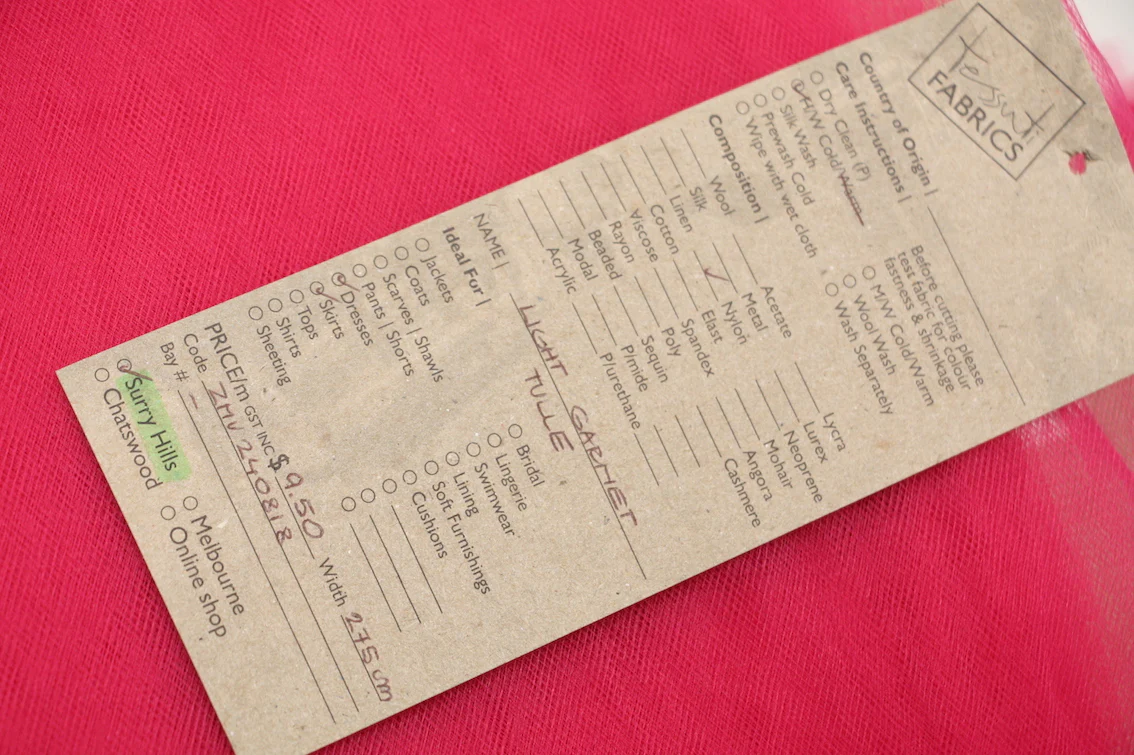 tessuti
FABRICS
Country of Origin |
Care Instructions |
Dry Clean (P)
H/W Cold/Warm
Silk Wash
Prewash Cold
Wipe with wet cloth
Before cutting please
test fabric for colour
fastness & shrinkage
M/W Cold/Warm
Wool Wash
Wash Separately
Composition |
Wool Acetate Lycra
Silk Metal Lurex
Linen Nylon Neoprene
Cotton Elast Mohair
Viscose Spandex Angora
Rayon Poly Cashmere
Beaded Sequin
Modal P/mide
Acrylic P/urethane
NAME | LIGHT GARMET
TULLE
Ideal For |
Jackets Bridal
Coats Lingerie
Scarves | Shawls Swimwear
Pants | Shorts Lining
Dresses Soft Furnishings
Skirts Cushions
Tops
Shirts
Sheeting
PRICE/m GST INC $ 9.50 Width 275 cm
Code ZMV 240818
Bay # –
Surry Hills Melbourne
Chatswood Online shop